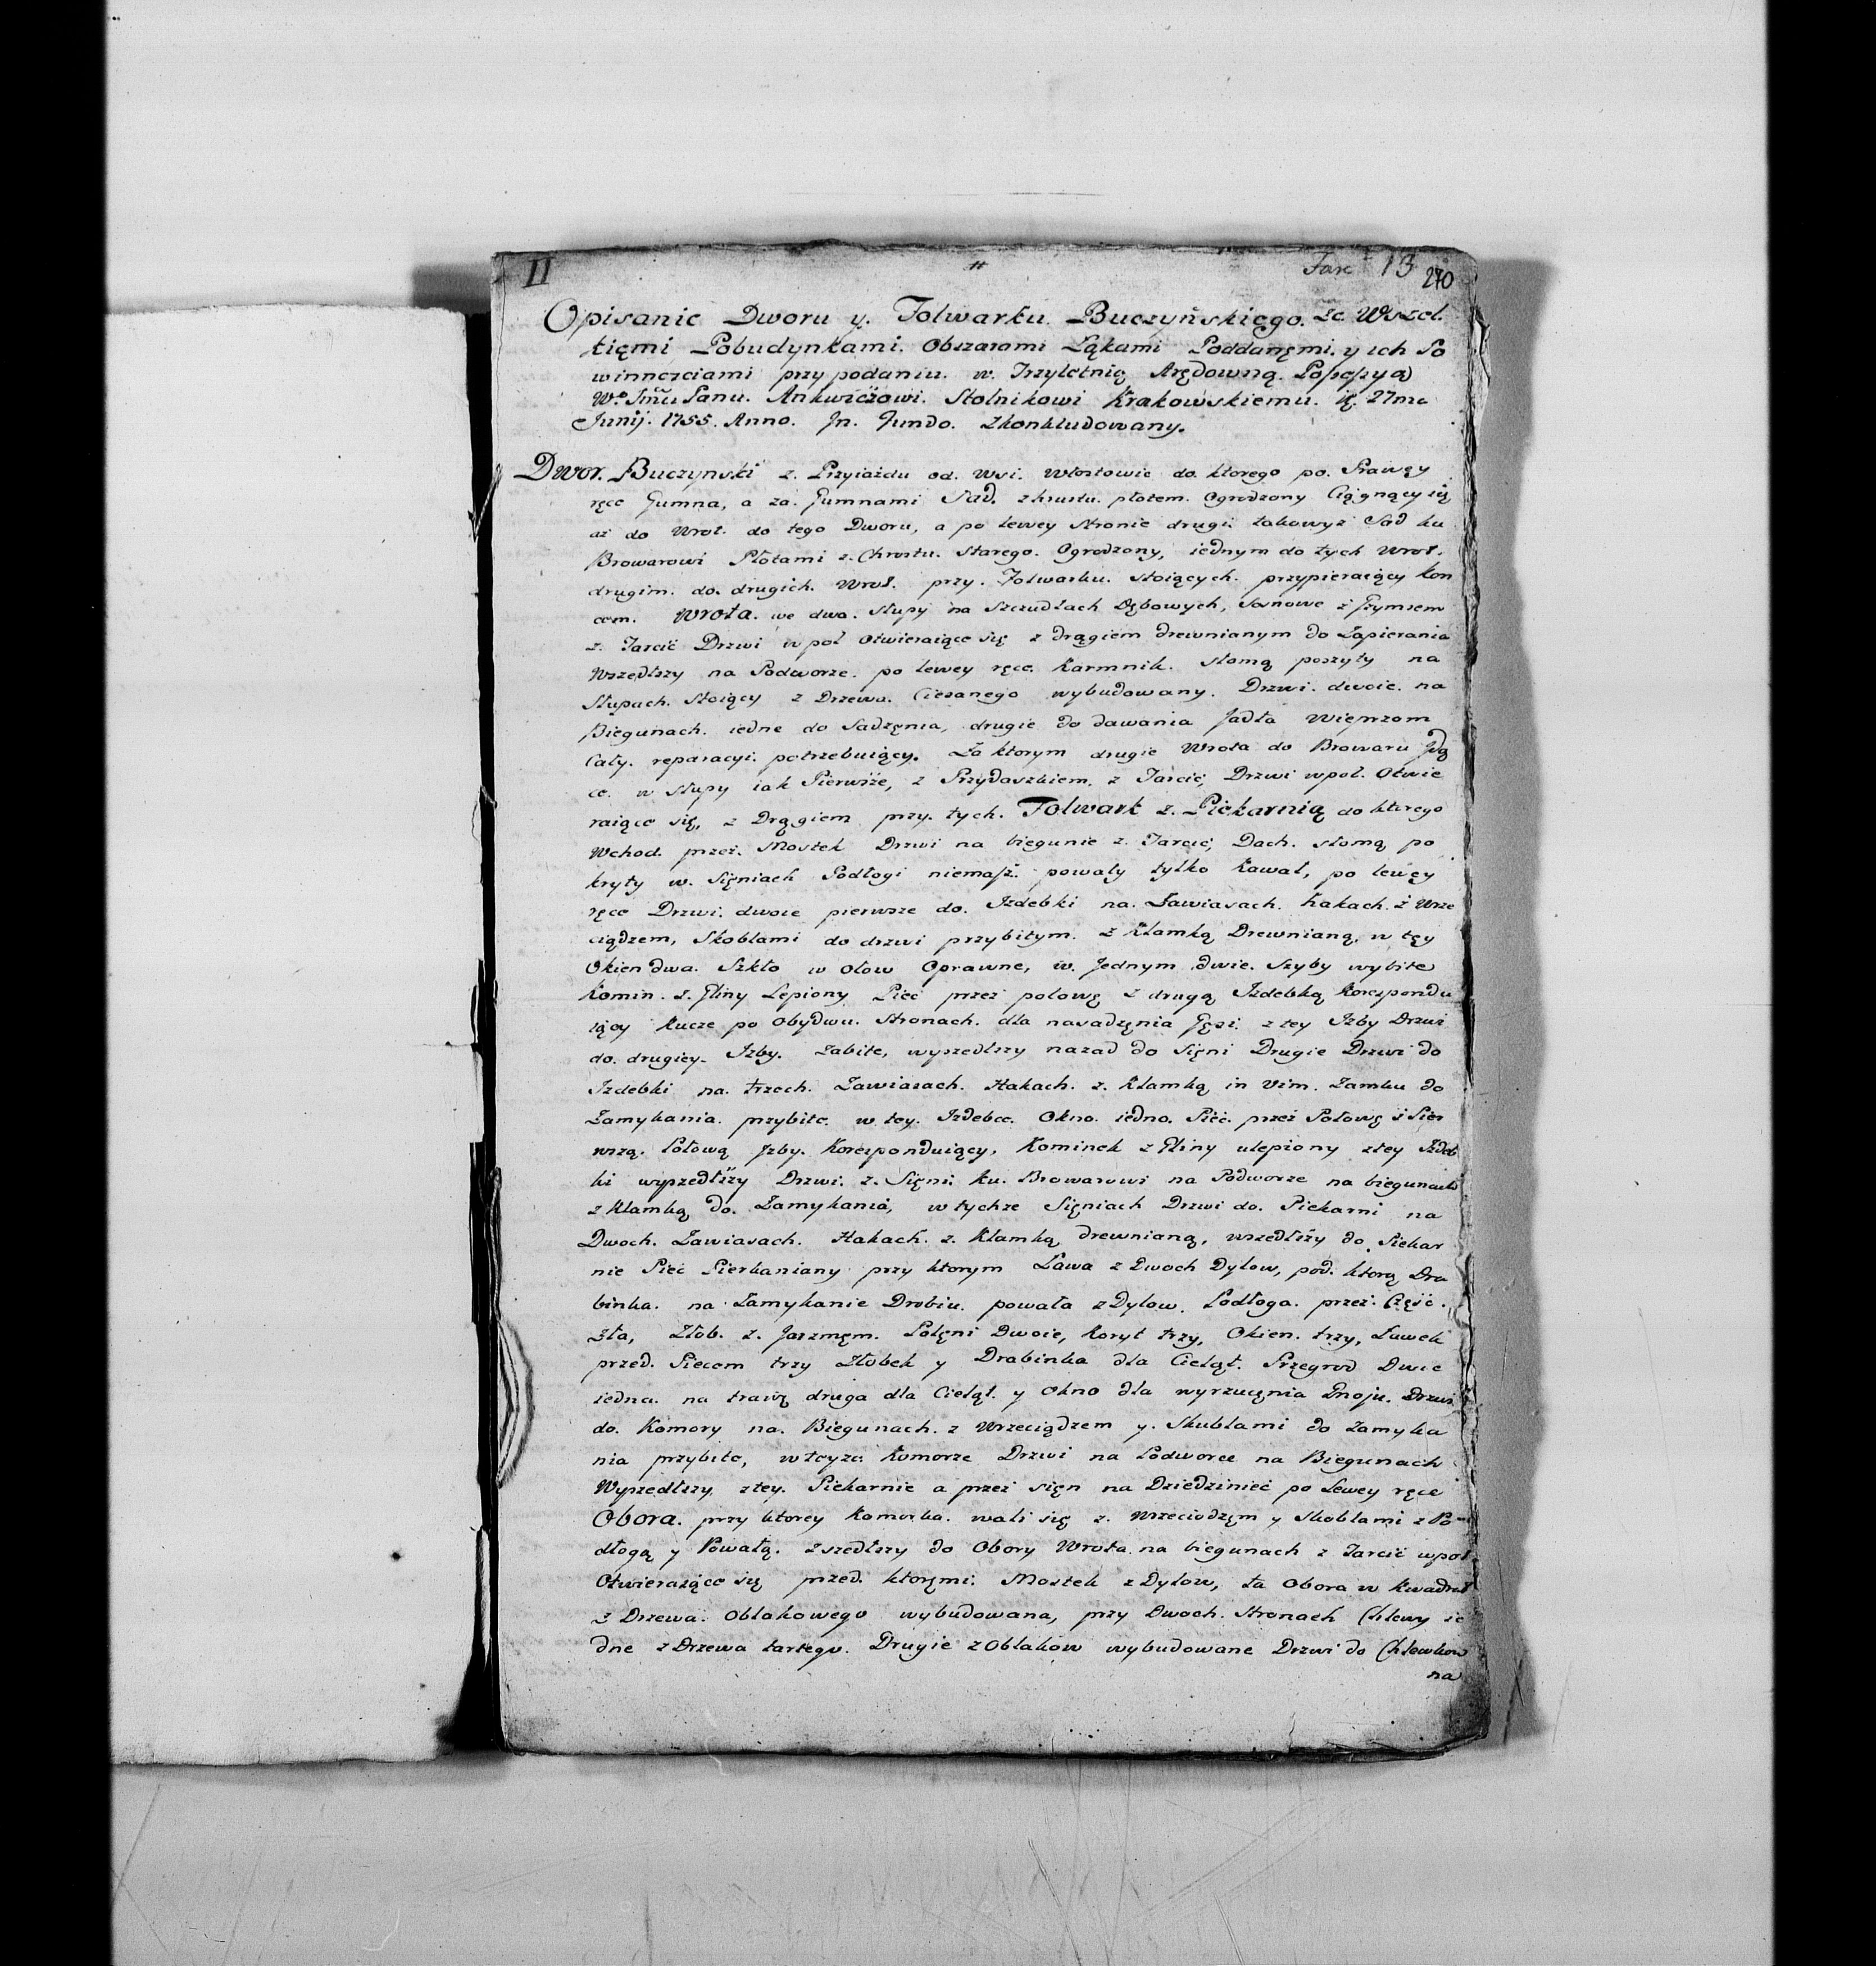 II " Fasc 13 270
Opisanie Dworu y. Folwarku Buczyńskiego. ze Wszel.
kięmi Pobudynkami. Obszarami Łąkami Poddanęmi. y ich Po
winnosciami przy podaniu. w. Trzyletnię Arędowną. Possessyą
Wᵒ Jmći Panu. Ankwiczowi. Stolnikowi Krakowskiemu. 27ma
Junij. 1755. Anno. Jn. Fundo. Zkonkludowany.
Dwor. Buczynski z. Przyiazdu od. Wsi. Włostowic do. ktorego po. Prawęy
ręce Gumna, a za. Gumnami Sad. zhrustu. płotem. Ogrodzony Ciągnący się
aż do Wrot. do tego Dworu, a po lewey stronie drugi takowyż Sad ku
Browarowi Płotami z. Chrostu. starego. Ogrodzony, iednym do tych Wrot.
drugim. do. drugich. Wrot. przy. Folwarku. stoiących. przypieraiący kon
cem. Wrota. we dwa. słupy na Szczudłach Dębowych, sosnowe z Gzymsem
z. Tarcić Drzwi wpoł Otwieraiące się z drągiem drewnianym do Zapierania
Wszedłszy na Podworze. po lewey ręce. Karmnik. słomą poszyty na
Słupach. stoiący z Drzewa. Ciesanego wybudowany. Drzwi. dwoie. na
Biegunach. iedne do Sadzęnia, drugie do dawania Jadła Wieprzom
Cały. reparacyi. potrzebuiący. Za ktorym drugie Wrota do Browaru Jdą
ce. w słupy iak Pierwsze, z Przydaszkiem. z Tarcić, Drzwi wpoł. Otwie
raiące się, z Drągiem przy. tych. Folwark z. Piekarnią do ktorego
Wchod. przez. Mostek Drzwi na biegunie z. Tarcić, Dach. słomą po
kryty w. Sięniach Podłogi niemasz. powały tylko kawał, po lewęy
ręce Drzwi. dwoie pierwsze do. Izdebki na. Zawiasach. hakach. z Wrze
ciądzem, Skoblami do drzwi przybitym. z Klamką Drewnianą. w tęy
Okien dwa. Szkło w Ołow Oprawne, w. Jednym dwie. szyby wybite
Komin. z. Gliny Lepiony Piec przez połowę z drugą Izdebką korespondu
iący Kucze po Obydwu. Stronach. dla nasadzęnia Gęsi. z tey Izby Drzwi
do. drugiey. Izby. zabite, wyszedłszy nazad do Sięni Drugie Drzwi do
Izdebki na. trzech. Zawiasach. Hakach. z. Klamką in Vim. Zamku do
Zamykania. przybite. w tey. Izdebce. Okno. iedno. Piec. przez Połowę z Pier
wszą. Połową Jzby. Korespondujący, Kominek z Gliny ulepiony z tey Izdeb
ki wyszedłszy Drzwi. z. Sięni. ku. Browarowi na Podworze na biegunach
z Klamką do. Zamykania, w tychze Sięniach Drzwi do. Piekarni na
Dwoch. Zawiasach. Hakach. z. Klamką drewnianą, wszedłszy do Piekar
nie Piec Piekaniany przy ktorym Ława z Dwoch Dylow, pod. ktorą Dra
binka. na Zamykanie Drobiu. powała z Dylow. Podłoga. przez. Częśc.
zła, Złob. z. Jarzmęm. Polęni Dwoie, koryt trzy, Okien. trzy, Ławek
przed. Piecem trzy Złobek y Drabinka dla Cieląt. Przegrod Dwie
iedna. na trawę druga dla Cieląt. y Okno dla wyrzucęnia Gnoju. Drzwi
do. Komory na. Biegunach. z Wrzeciądzem y. Skublami do Zamyka
nia przybite, w teyze Komorze Drzwi na Podworze na Biegunach
Wyszedłszy ztey. Piekarnie a przez sięn na Dziedziniec po Lewey ręce
Obora. przy ktorey Komorka. wali się z. Wrzeciodzęm y skoblami z Po
dłogą y Powałą. Zszedłszy do Obory Wrota. na biegunach z Tarcić wpoł
Otwieraiące się przed. ktoręmi. Mostek z Dylow, ta Obora w kwadrat
z Drzewa. Obłakowego wybudowana, przy Dwoch. Stronach Chlewy ie
dne z Drzewa tartego. Drugie z Obłakow wybudowane Drzwi do Chlewkow
na